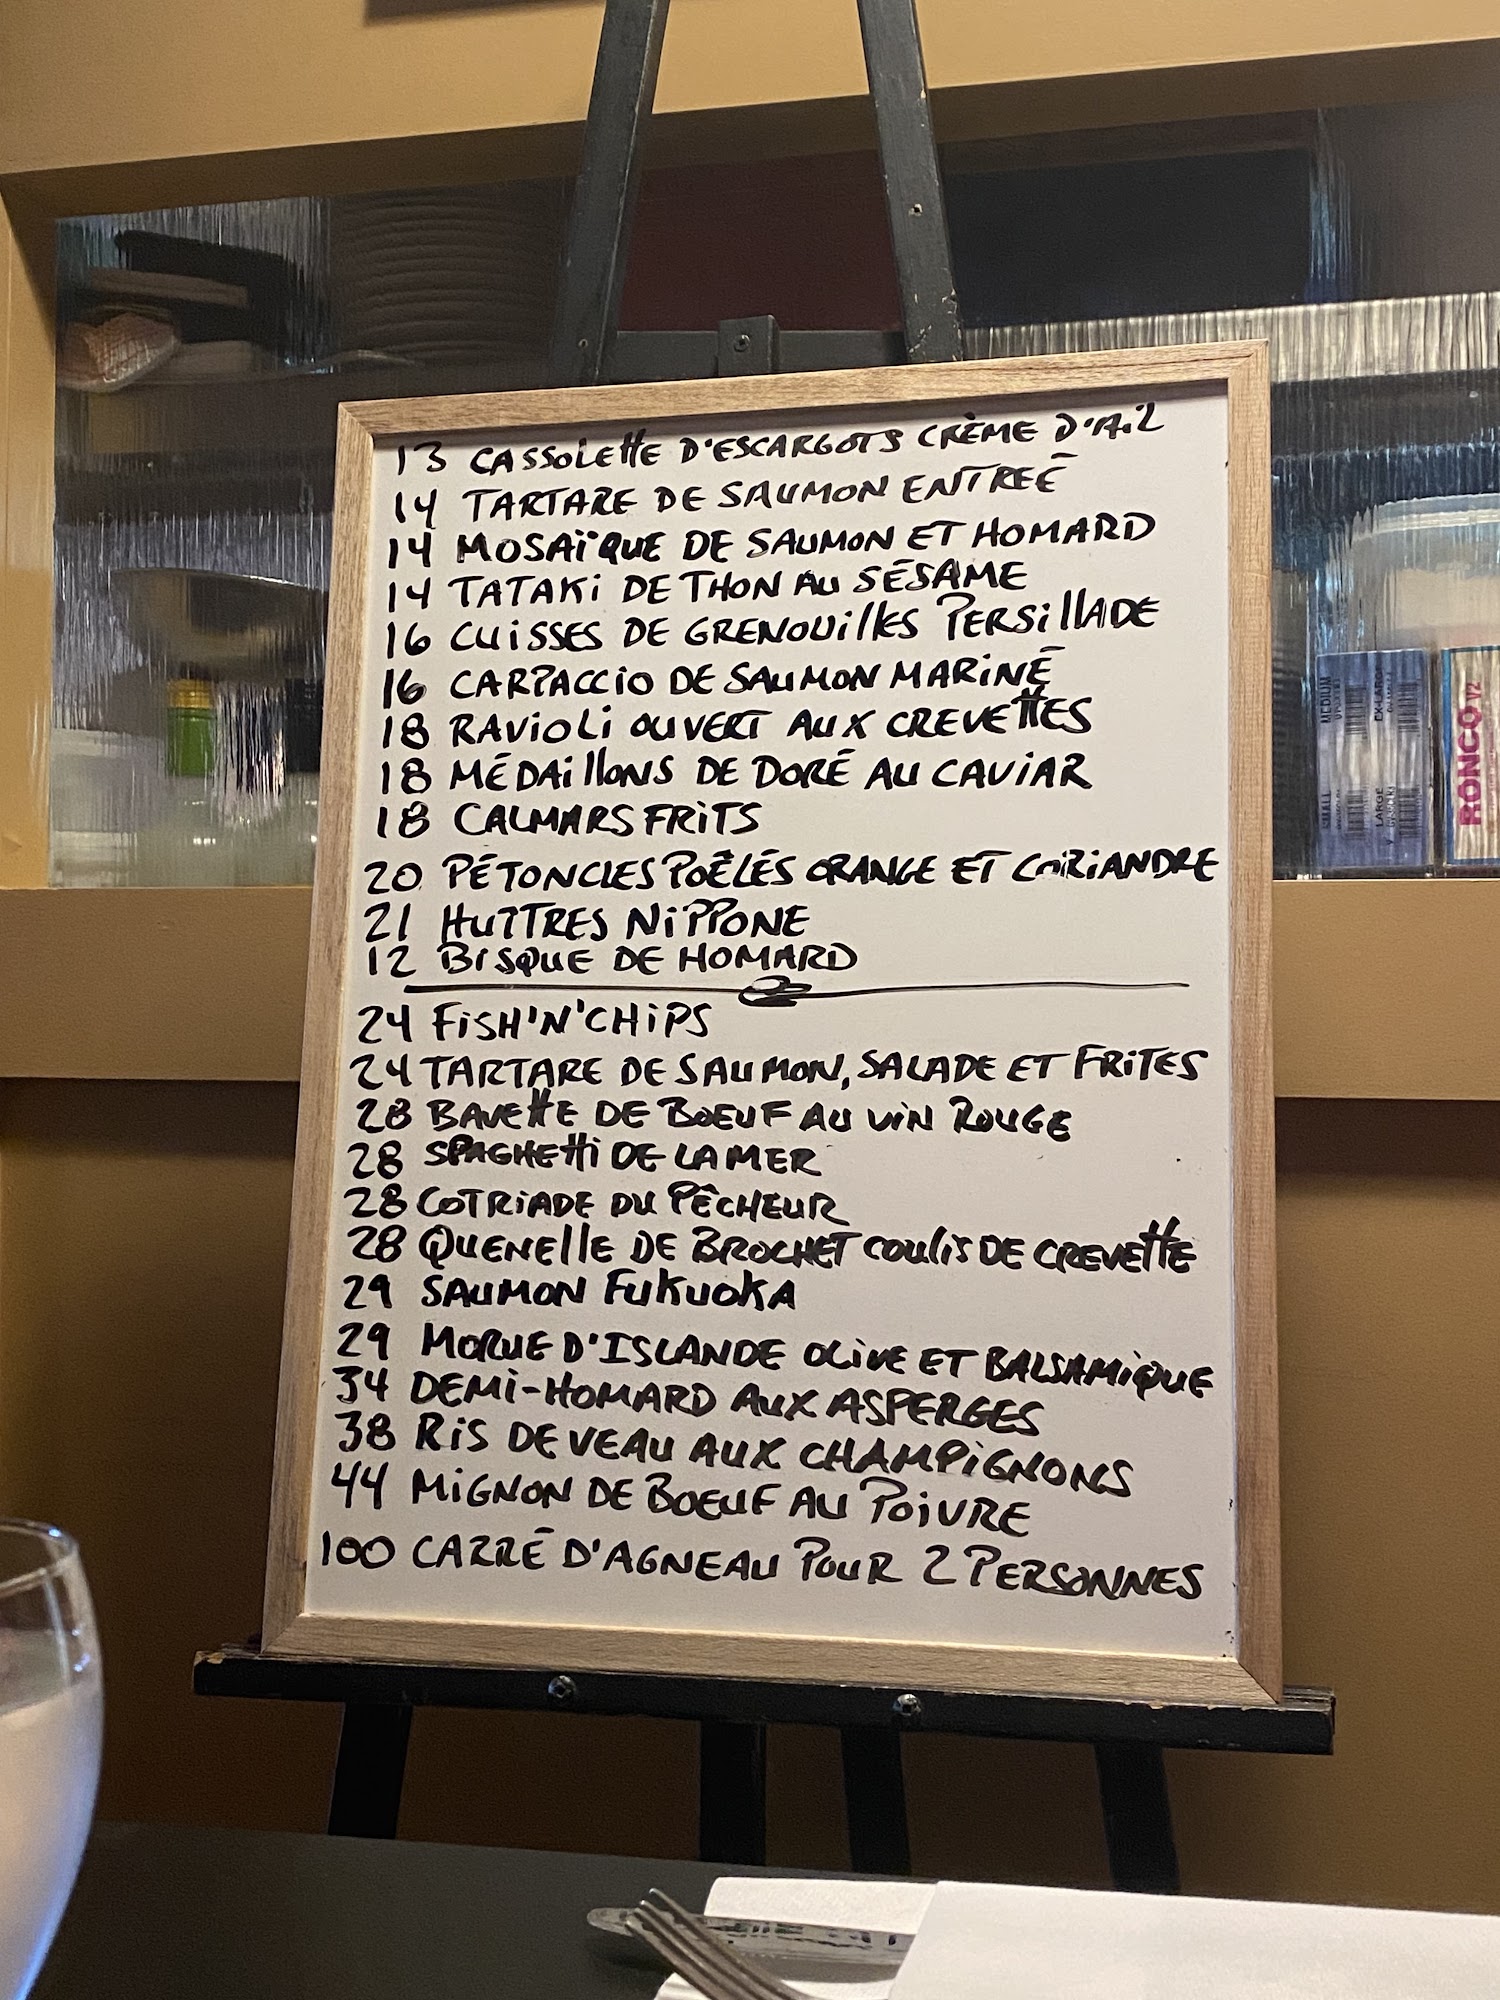 13 CASSOLETTE D'ESCARGOTS CRÈME D'AIL
14 TARTARE DE SAUMON ENTREÉ
14 MOSAÏQUE DE SAUMON ET HOMARD
14 TATAKI DE THON AU SÉSAME
16 CUISSES DE GRENOUILLES PERSILLADE
16 CARPACCIO DE SAUMON MARINÉ
18 RAVIOLI OUVERT AUX CREVETTES
18 MÉDAILLONS DE DORÉ AU CAVIAR
18 CALMARS FRITS
20 PÉTONCLES POÊLÉS ORANGE ET CORIANDRE
21 HUÎTRES NIPPONE
12 BISQUE DE HOMARD
24 FISH'N'CHIPS
24 TARTARE DE SAUMON, SALADE ET FRITES
28 BAVETTE DE BOEUF AU VIN ROUGE
28 SPAGHETTI DE LA MER
28 COTRIADE DU PÊCHEUR
28 QUENELLE DE BROCHET COULIS DE CREVETTE
29 SAUMON FUKUOKA
29 MORUE D'ISLANDE OLIVE ET BALSAMIQUE
34 DEMI-HOMARD AUX ASPERGES
38 RIS DE VEAU AUX CHAMPIGNONS
44 MIGNON DE BOEUF AU POIVRE
100 CARRÉ D'AGNEAU POUR 2 PERSONNES
MEDIUM
LARGE
RONCO V2